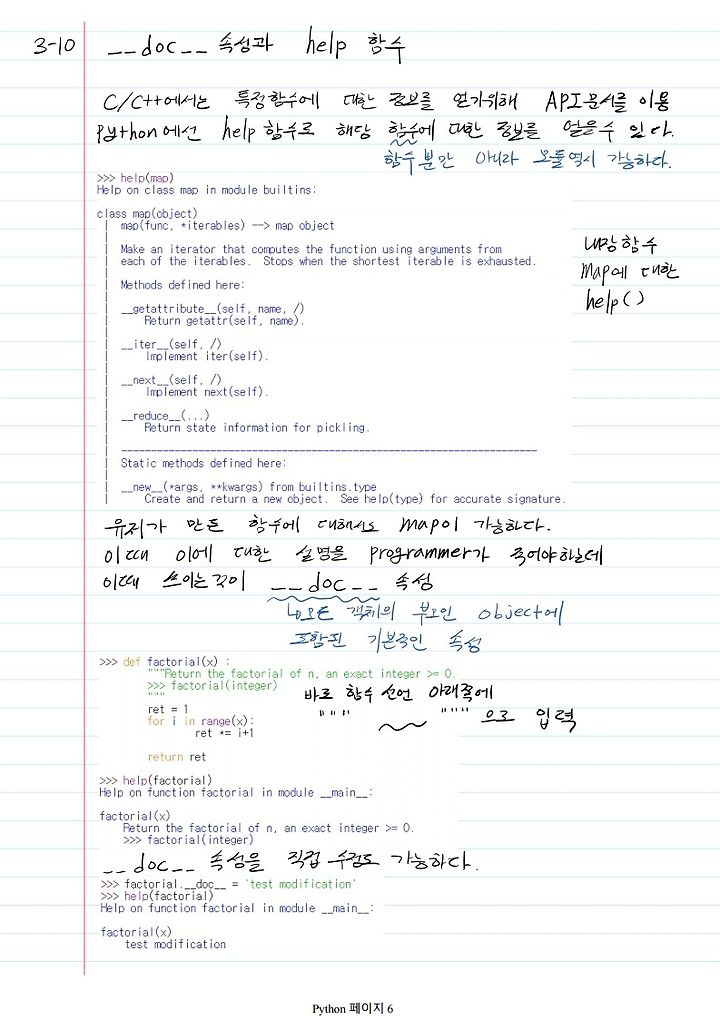 3-10 __doc__ 속성과 help 함수
C/C++에서는 특정함수에 대한 정보를 얻기위해 API문서를 이용
Python에선 help 함수로 해당 함수에 대한 정보를 얻을수 있다.
함수뿐만 아니라 모듈역시 가능하다.
>>> help(map)
Help on class map in module builtins:
class map(object)
 |  map(func, *iterables) --> map object
 |
 |  Make an iterator that computes the function using arguments from
 |  each of the iterables.  Stops when the shortest iterable is exhausted.
 |
 |  Methods defined here:
 |
 |  __getattribute__(self, name, /)
 |      Return getattr(self, name).
 |
 |  __iter__(self, /)
 |      Implement iter(self).
 |
 |  __next__(self, /)
 |      Implement next(self).
 |
 |  __reduce__(...)
 |      Return state information for pickling.
 |
 |  ----------------------------------------------------------------------
 |  Static methods defined here:
 |
 |  __new__(*args, **kwargs) from builtins.type
 |      Create and return a new object.  See help(type) for accurate signature.
내장함수
map에 대한
help()
유저가 만든 함수에 대해서도 map이 가능하다.
이때 이에 대한 설명을 programmer가 주어야하는데
이때 쓰이는것이 __doc__ 속성
↳모든 객체의 부모인 object에
포함된 기본적인 속성
>>> def factorial(x) :
        """Return the factorial of n, an exact integer >= 0.
        >>> factorial(integer)
        """
        ret = 1
        for i in range(x):
                ret *= i+1
        return ret
바로 함수선언 아래쪽에
""" ~~ """ 으로 입력
>>> help(factorial)
Help on function factorial in module __main__:
factorial(x)
    Return the factorial of n, an exact integer >= 0.
    >>> factorial(integer)
__doc__ 속성을 직접 수정도 가능하다.
>>> factorial.__doc__ = 'test modification'
>>> help(factorial)
Help on function factorial in module __main__:
factorial(x)
    test modification
Python 페이지 6